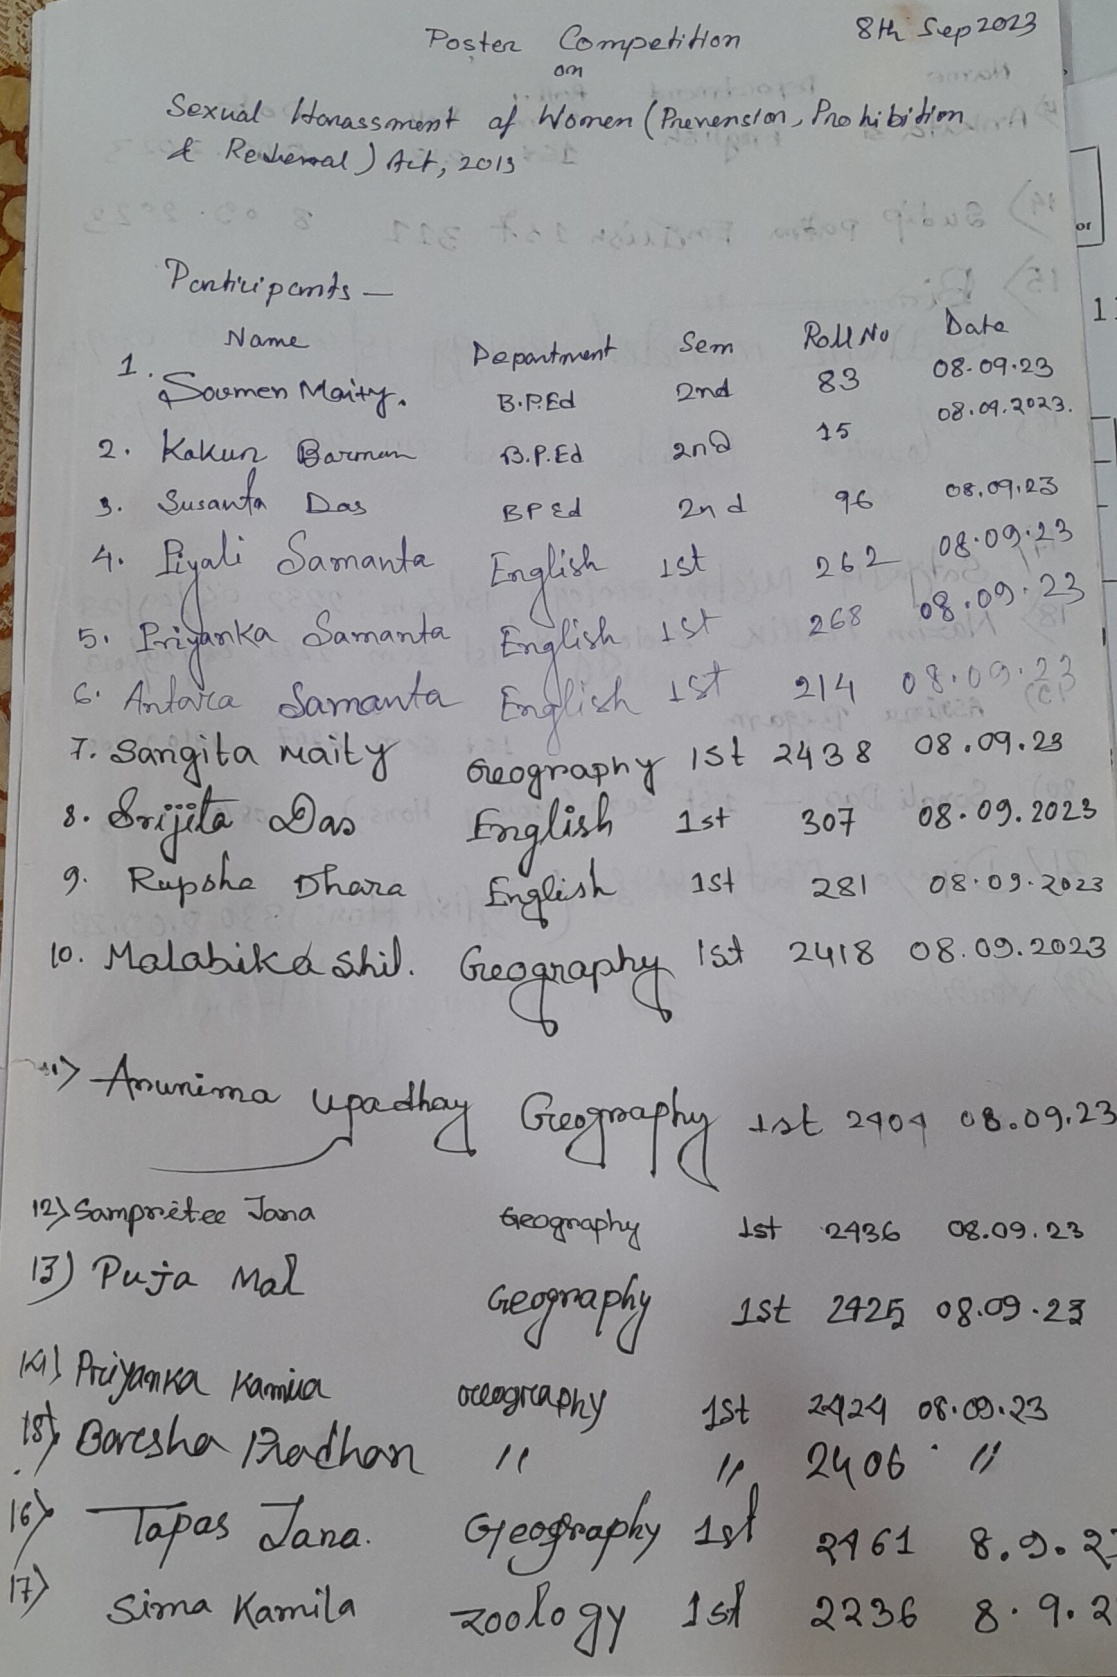 Poster Competition 8th Sep 2023
on
Sexual Harassment of Women (Prevension, Prohibition
& Redressal) Act, 2013
Participants —
Name Department Sem Roll No Date
1. Soumen Maity. B.P.Ed 2nd 83 08.09.23
2. Kakun Barman B.P.Ed 2nd 15 08.09.2023.
3. Susanta Das BPEd 2nd 96 08.09.23
4. Piyali Samanta English 1st 262 08.09.23
5. Priyanka Samanta English 1st 268 08.09.23
6. Antara Samanta English 1st 214 08.09.23
7. Sangita Maity Geography 1st 2438 08.09.23
8. Srijita Das English 1st 307 08.09.2023
9. Rupsha Dhara English 1st 281 08.09.2023
10. Malabika Shil. Geography 1st 2418 08.09.2023
11) Arunima Upadhay Geography 1st 2404 08.09.23
12) Sampritee Jana Geography 1st 2436 08.09.23
13) Puja Mal Geography 1st 2425 08.09.23
14) Priyanka Kamila Geography 1st 2424 08.09.23
15) Baresha Pradhan " " 2406 "
16) Tapas Jana. Geography 1st 2461 8.9.2
17) Sima Kamila Zoology 1st 2236 8.9.2